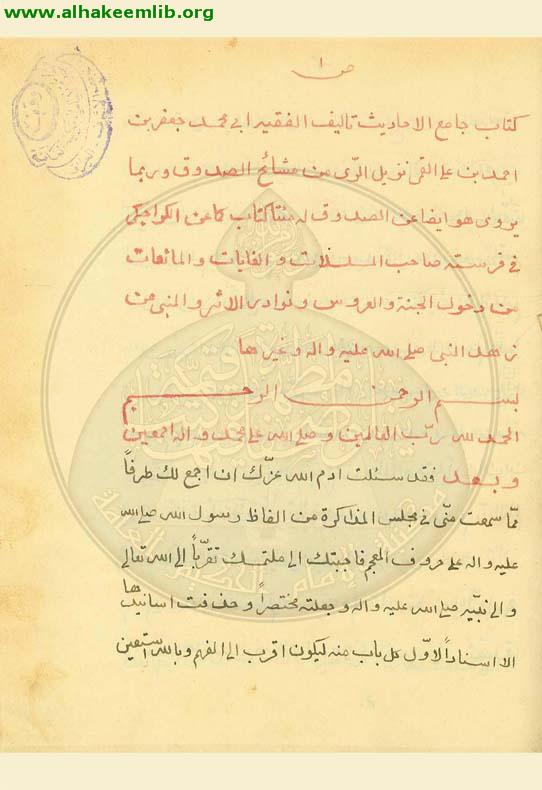 www.alhakeemlib.org
ص ١
كتاب جامع الاحاديث تاليف الفقير ابي محمد جعفر بن
احمد بن علي القمي نزيل الري من مشائخ الصدوق وربما
يروى هو ايضا عن الصدوق له مئتا كتاب كما عن الكراجكي
في فرسته صاحب المسلسلات و الغايات و المانعات
من دخول الجنة والعروس ونوادر الاثر و المنبى عن
زهد النبي صلى الله عليه واله وغيرها
بسم الله الرحمن الرحيم
الحمد لله رب العالمين وصلى الله على محمد واله اجمعين
وبعد فقد سئلت ادم الله عزك ان اجمع لك طرفاً
مما سمعت منّي في مجلس المذاكرة من الفاظ رسول الله صلى الله
عليه واله على حروف المعجم فاجبتك الى ملتمسك تقرّباً الى الله تعالى
والى نبيّه صلى الله عليه واله وجعلته مختصراً وحذفت اسانيدها
الا اسناداً لاوّل كل باب منه ليكون اقرب الى الفهم وبالله استعين